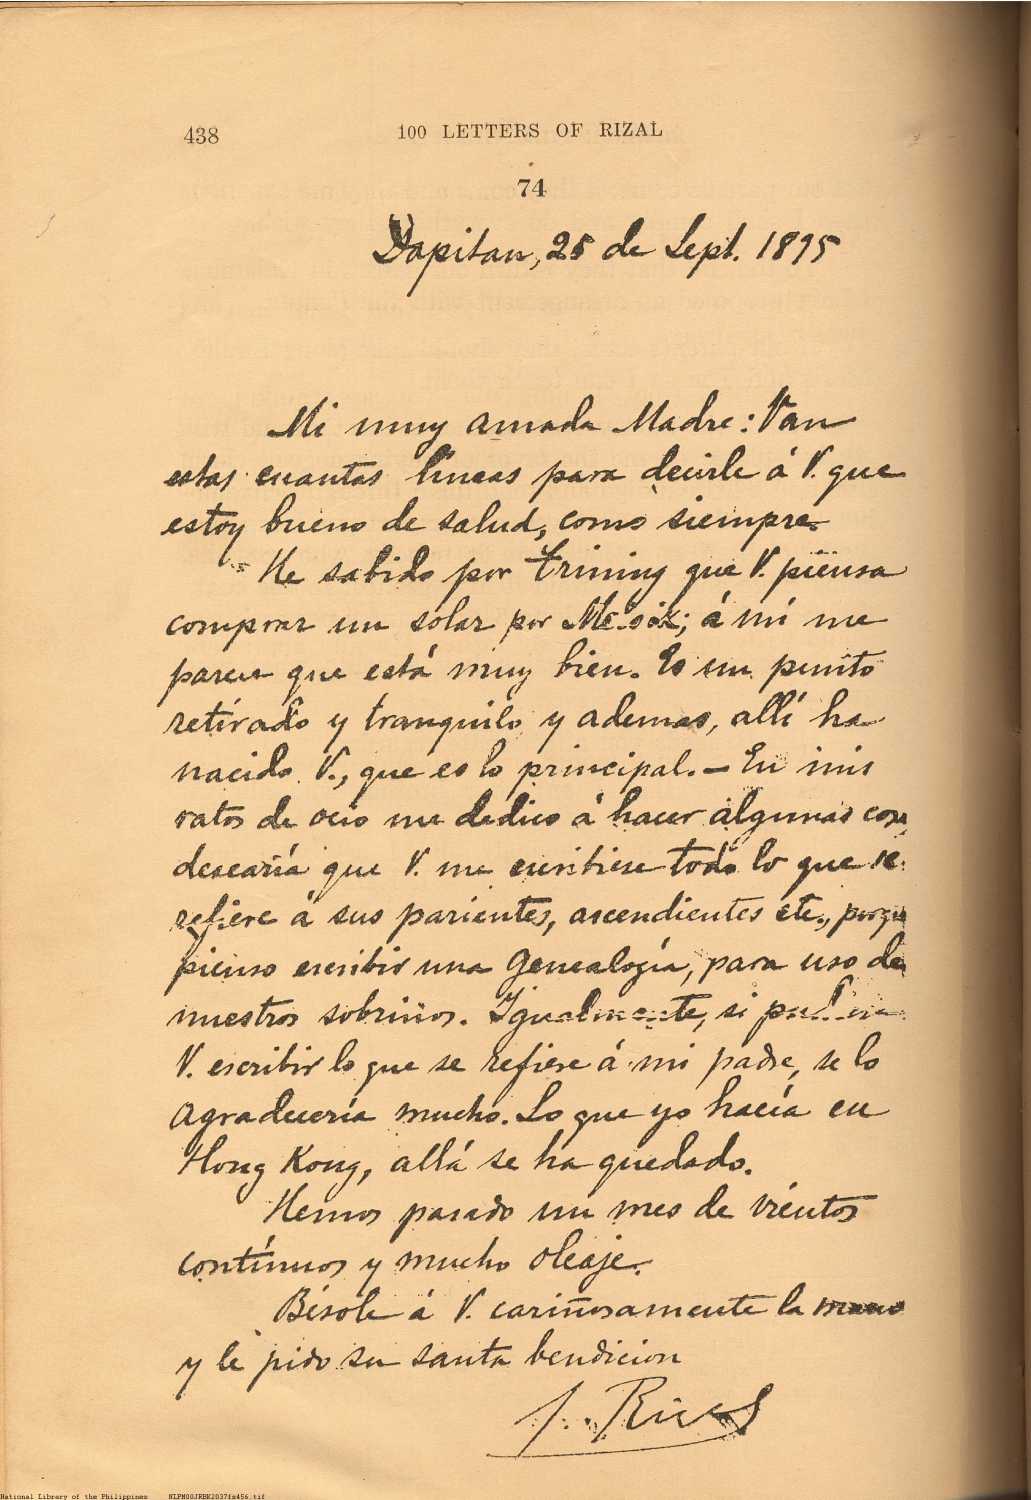 438
100 LETTERS OF RIZAL
74
Dapitan, 25 de Sept. 1895
Mi muy amada Madre: Van
estas cuantas líneas para decirle á V. que
estoy bueno de salud, como siempre.
He sabido por Trining que V. piensa
comprar un solar por; á mí me
parece que está muy bien. Es un punto
retirado y tranquilo y ademas, allí ha
nacido V., que es lo principal. — En mis
ratos de ocio me dedico á hacer algunas
desearía que V. me escribiese todo lo que se
refiere á sus parientes, ascendientes etc., porque
pienso escribir una Genealogía, para uso de
nuestros sobrinos. Igualmente, si
V. escribir lo que se refiere á mi padre, se lo
agradecería mucho. Lo que yo hacía en
Hong Kong, allá se ha quedado.
Hemos pasado un mes de vientos
contínuos y mucho oleaje.
Bésole á V. cariñosamente la mano
y le pido su santa bendicion
J. Rizal
National Library of the Philippines NLPM00JRBK2037fs456.tif